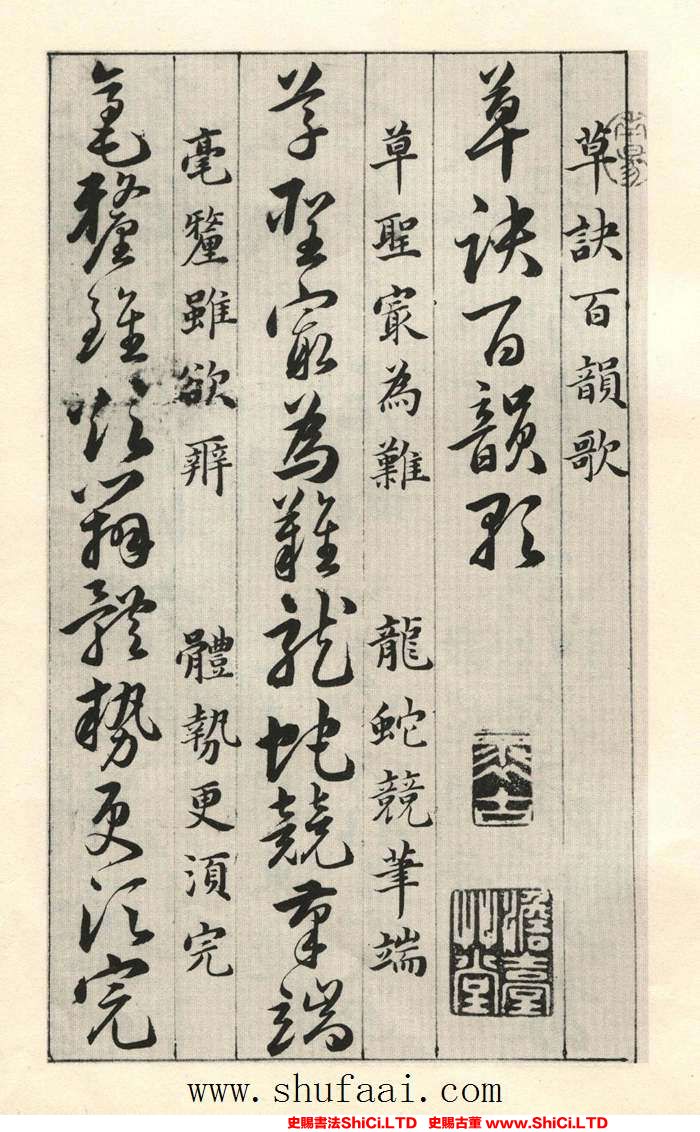 草訣百韻歌
草訣百韻歌
草聖寂為難 龍蛇競筆端
草聖寂為難龍蛇競筆端
毫釐雖欲辨 體勢更須完
毫釐雖欲辨體勢更須完
www.shufaai.com
史賜書法ShiCi.LTD 史賜古董 www.ShiCi.LTD